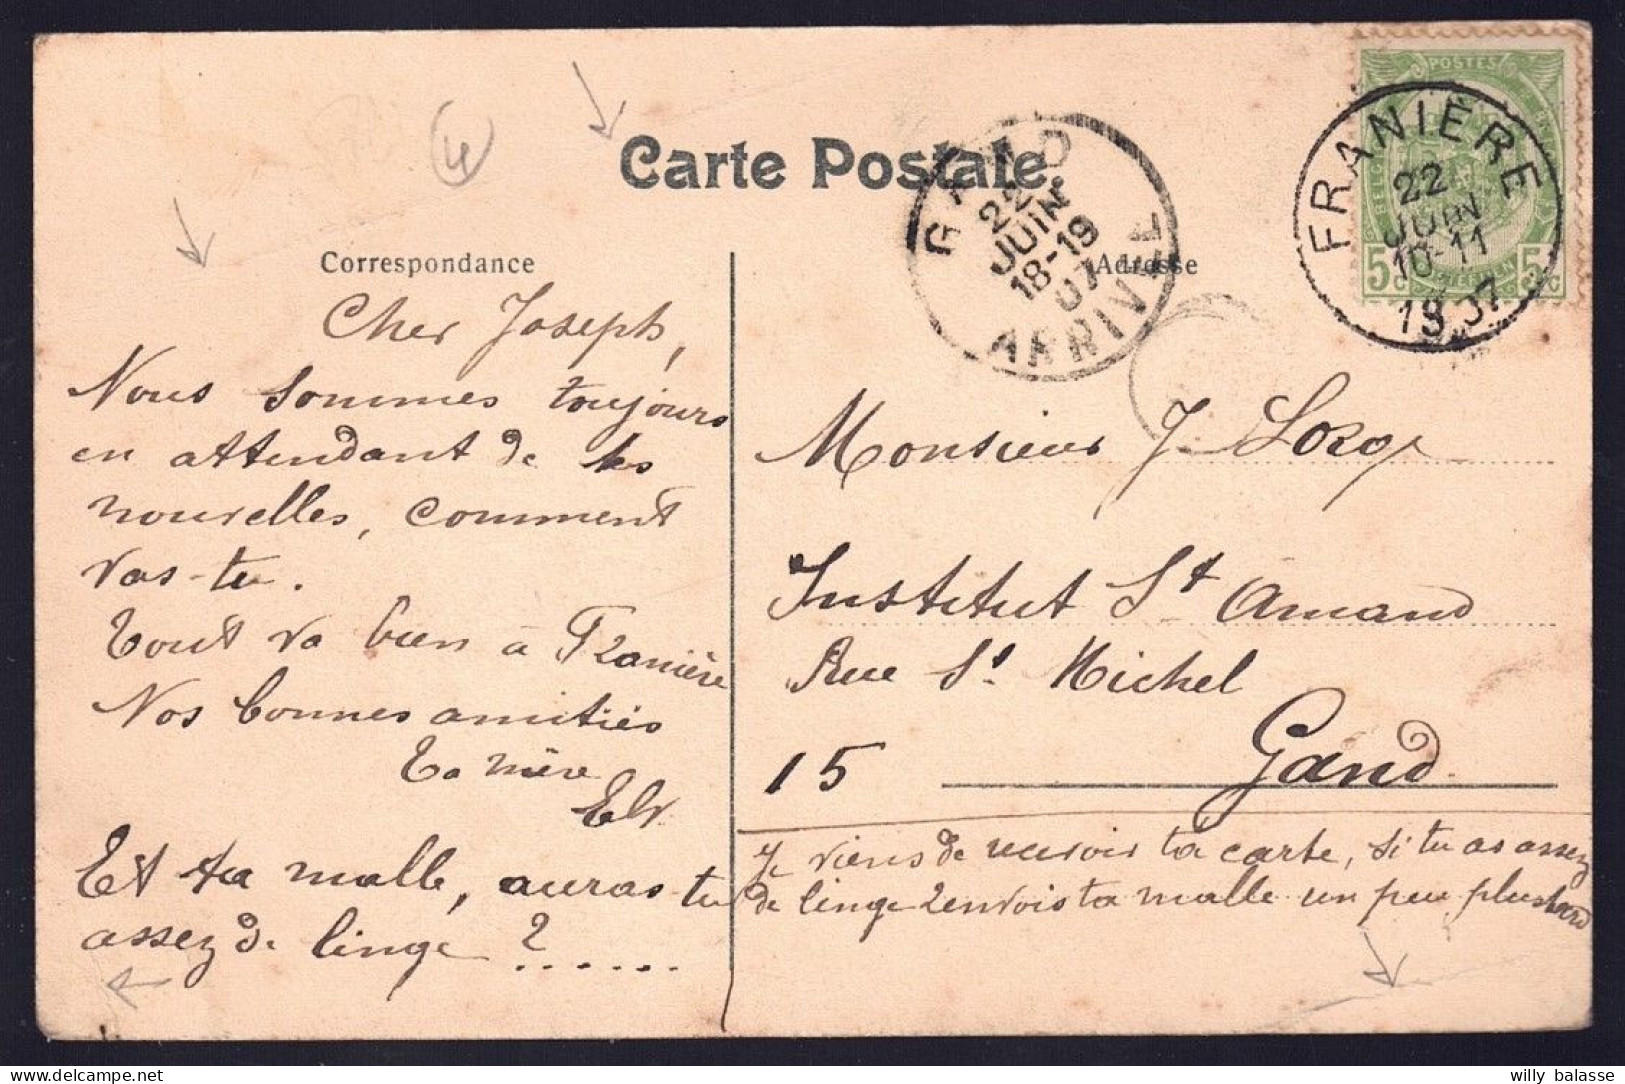 Carte Postale
Correspondance
Adresse
4
POSTES
5c 5c
FRANIÈRE
22
JUIN
10-11
1907
GAND
22
JUIN
18-19
07
ARRIVEE
Cher Joseph,
Nous sommes toujours
en attendant de tes
nouvelles, comment
vas-tu.
Tout va bien à Franière
Nos bonnes amitiés
Ta mère
Et ta malle, auras-tu
assez de linge ? ......
Monsieur J.
Institut St Amand
Rue St Michel
15 Gand
Je viens de recevoir ta carte, si tu as assez
de linge renvois ta malle un peu plus tard
willy balasse